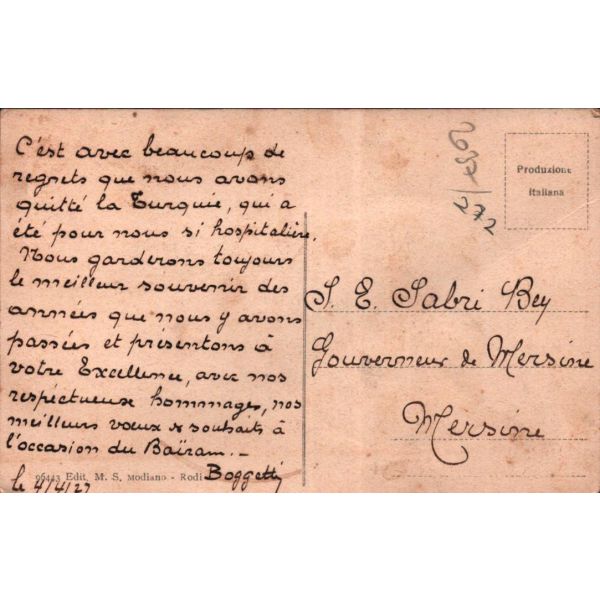 C'est avec beaucoup de
regrets que nous avons
quitté la Turquie, qui a
été pour nous si hospitalière.
Nous garderons toujours
le meilleur souvenir des
années que nous y avons
passées et présentons à
votre Excellence, avec nos
respectueux hommages, nos
meilleurs vœux & souhaits à
l'occasion du Baïram. -
Boggetti
96443 Edit. M. S. Modiano - Rodi
le 4/4/27
272
Produzione
italiana
S. E. Sabri Bey
Gouverneur de Mersine
Mersine